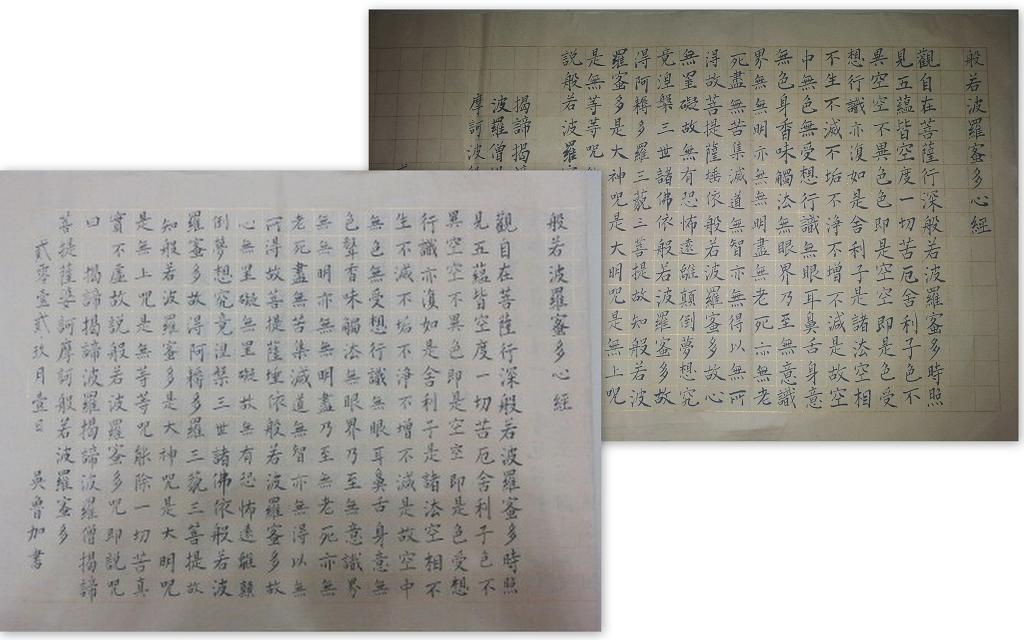 般若波羅蜜多心經
觀自在菩薩行深般若波羅蜜多時照
見五蘊皆空度一切苦厄舍利子色不
異空空不異色色即是空空即是色受
想行識亦復如是舍利子是諸法空相
不生不滅不垢不淨不增不減是故空
中無色無受想行識無眼耳鼻舌身意
無色身香味觸法無眼界乃至無意識
界無無明亦無無明盡無老死亦無老
死盡無苦集滅道無智亦無得以無所
得故菩提薩埵依般若波羅蜜多故心
無罣礙故無有恐怖遠離顛倒夢想究
竟涅槃三世諸佛依般若波羅蜜多故
得阿耨多羅三藐三菩提故知般若波
羅蜜多是大神呪是大明呪是無上呪
是無等等呪
說般若波羅
揭諦揭
波羅僧
摩訶波
般若波羅蜜多心經
觀自在菩薩行深般若波羅蜜多時照
見五蘊皆空度一切苦厄舍利子色不
異空空不異色即是空空即是色受想
行識亦復如是舍利子是諸法空相不
生不滅不垢不淨不增不減是故空中
無色無受想行識無眼耳鼻舌身意無
色聲香味觸法無眼界乃至無意識界
無無明亦無無明盡乃至無老死亦無
老死盡無苦集滅道無智亦無得以無
所得故菩提薩埵依般若波羅蜜多故
心無罣礙無罣礙故無有恐怖遠離顛
倒夢想究竟涅槃三世諸佛依般若波
羅蜜多故得阿耨多羅三藐三菩提故
知般若波羅蜜多是大神呪是大明呪
是無上呪是無等等呪能除一切苦真
實不虛故說般若波羅蜜多呪即說呪
曰 揭諦揭諦波羅揭諦波羅僧揭諦
菩提薩婆訶摩訶般若波羅蜜多
貳零壹貳玖月壹日 吳魯加書